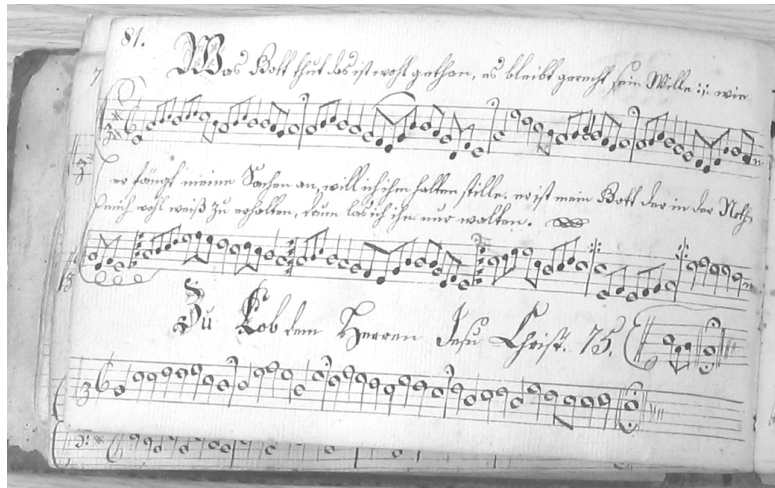 81.
Was Gott thut das ist wohl gethan, es bleibt gerecht sein Wille :,: wie
er fängt meine Sachen an, will ich ihm halten stille. er ist mein Gott der in der Noth
mich wohl weiß zu erhalten, drum laß ich ihn nur walten.
Zu Lob dem Herren Jesu Christ. 75.